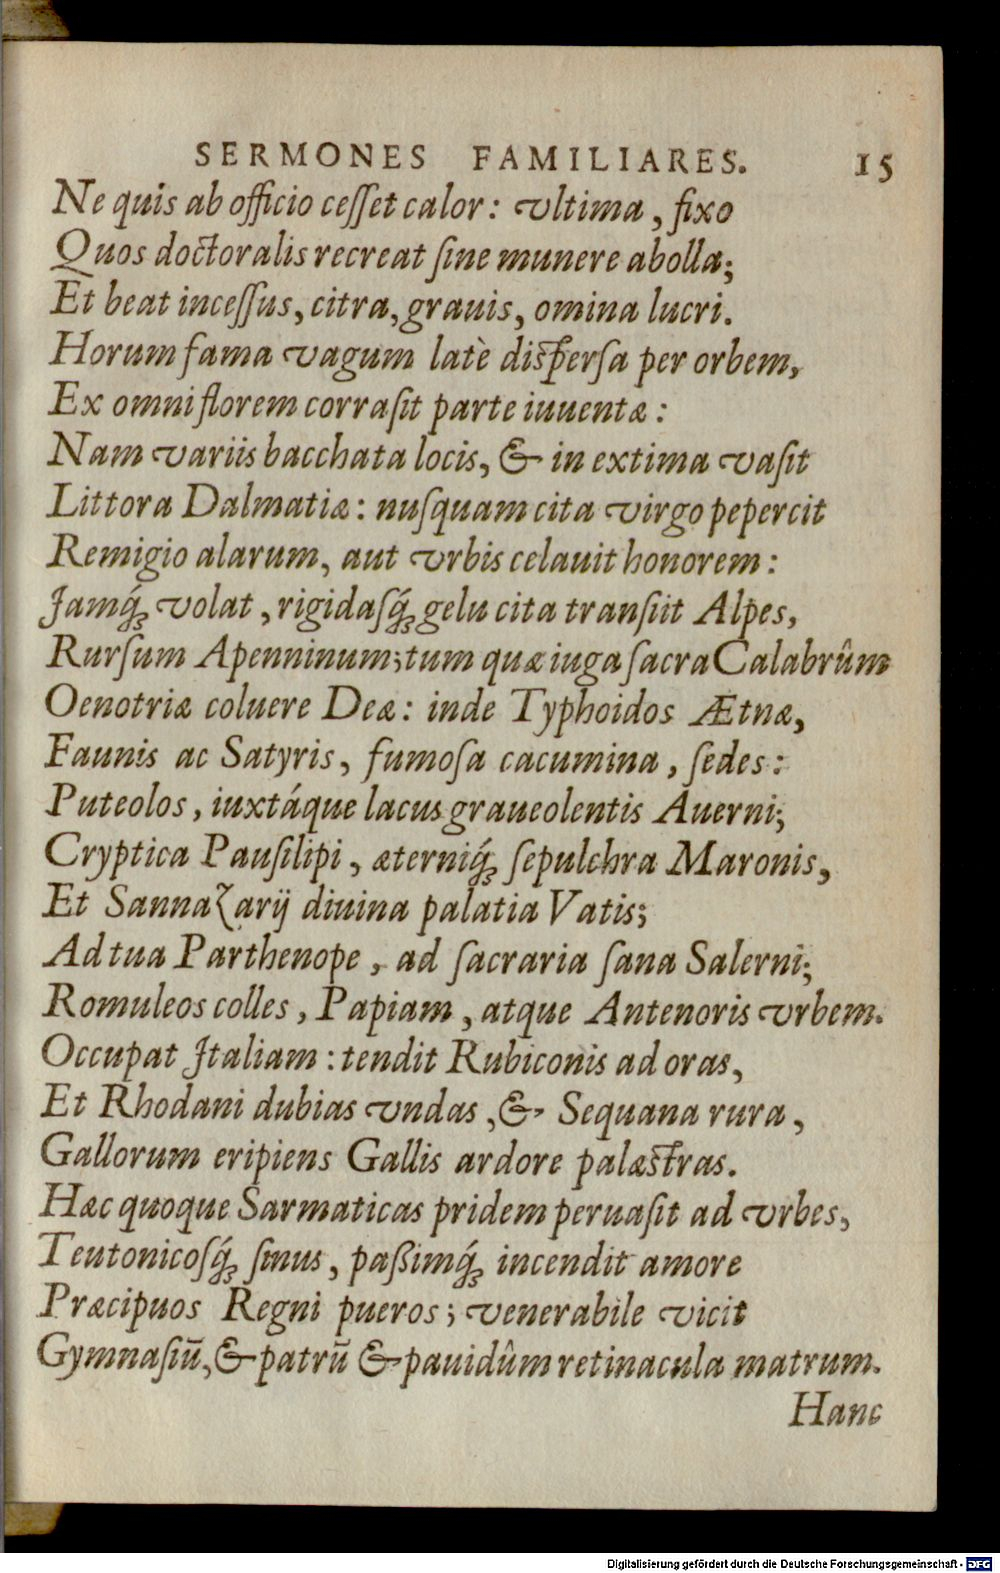 SERMONES FAMILIARES. 15
Ne quis ab officio ceſſet calor: vltima, fixo
Quos doctoralis recreat ſine munere abolla;
Et beat inceſſus, citra, grauis, omina lucri.
Horum fama vagum latè diſperſa per orbem,
Ex omni florem corraſit parte iuuentæ:
Nam variis bacchata locis, & in extima vaſit
Littora Dalmatiæ: nuſquam cita virgo pepercit
Remigio alarum, aut vrbis celauit honorem:
Jamq́; volat, rigidaſq́; gelu cita tranſiit Alpes,
Rurſum Apenninum; tum quæ iuga ſacra Calabrûm
Oenotriæ coluere Deæ: inde Typhoidos Ætnæ,
Faunis ac Satyris, fumoſa cacumina, ſedes:
Puteolos, iuxtáque lacus graueolentis Auerni;
Cryptica Pauſilipi, æterniq́; ſepulchra Maronis,
Et Sannazarij diuina palatia Vatis;
Ad tua Parthenope, ad ſacraria ſana Salerni;
Romuleos colles, Papiam, atque Antenoris vrbem.
Occupat Jtaliam: tendit Rubiconis ad oras,
Et Rhodani dubias vndas, & Sequana rura,
Gallorum eripiens Gallis ardore palæſtras.
Hæc quoque Sarmaticas pridem peruaſit ad vrbes,
Teutonicoſq́; ſinus, paßimq́; incendit amore
Præcipuos Regni pueros; venerabile vicit
Gymnaſiū, & patrū & pauidûm retinacula matrum.
Hanc
Digitalisierung gefördert durch die Deutsche Forschungsgemeinschaft - DFG